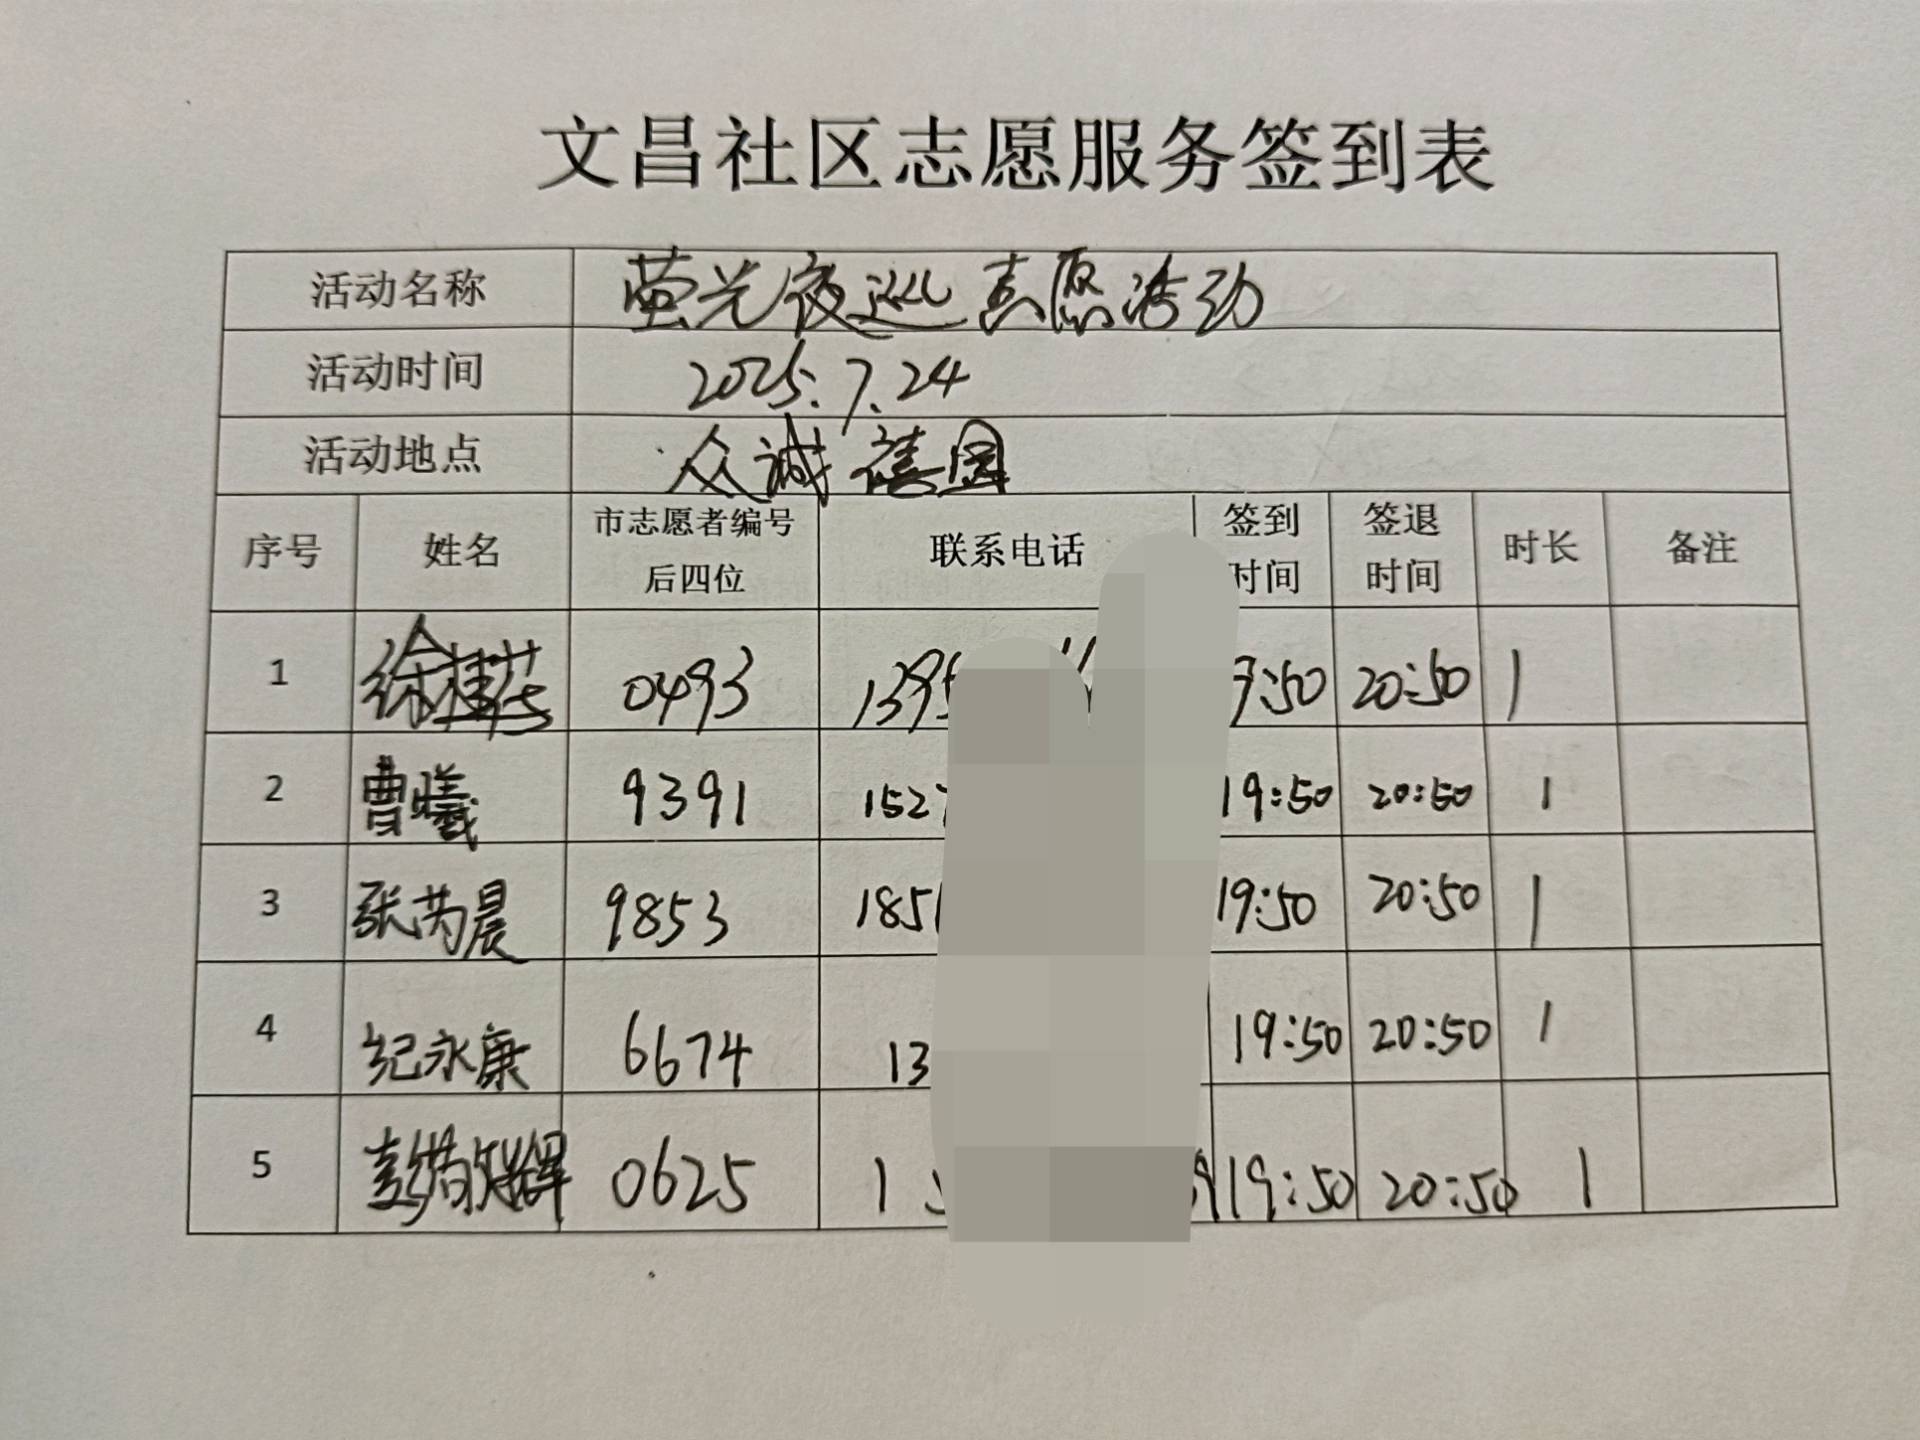 文昌社区志愿服务签到表
活动名称 萤光夜巡志愿活动
活动时间 2025.7.24
活动地点 众诚禧园
序号 姓名 市志愿者编号后四位 联系电话 签到时间 签退时间 时长 备注
1 徐桂芬 0493 1395 9:50 20:50 1
2 曹曦 9391 1527 19:50 20:50 1
3 张芮晨 9853 1851 19:50 20:50 1
4 纪永康 6674 13 19:50 20:50 1
5 0625 1 19:50 20:50 1